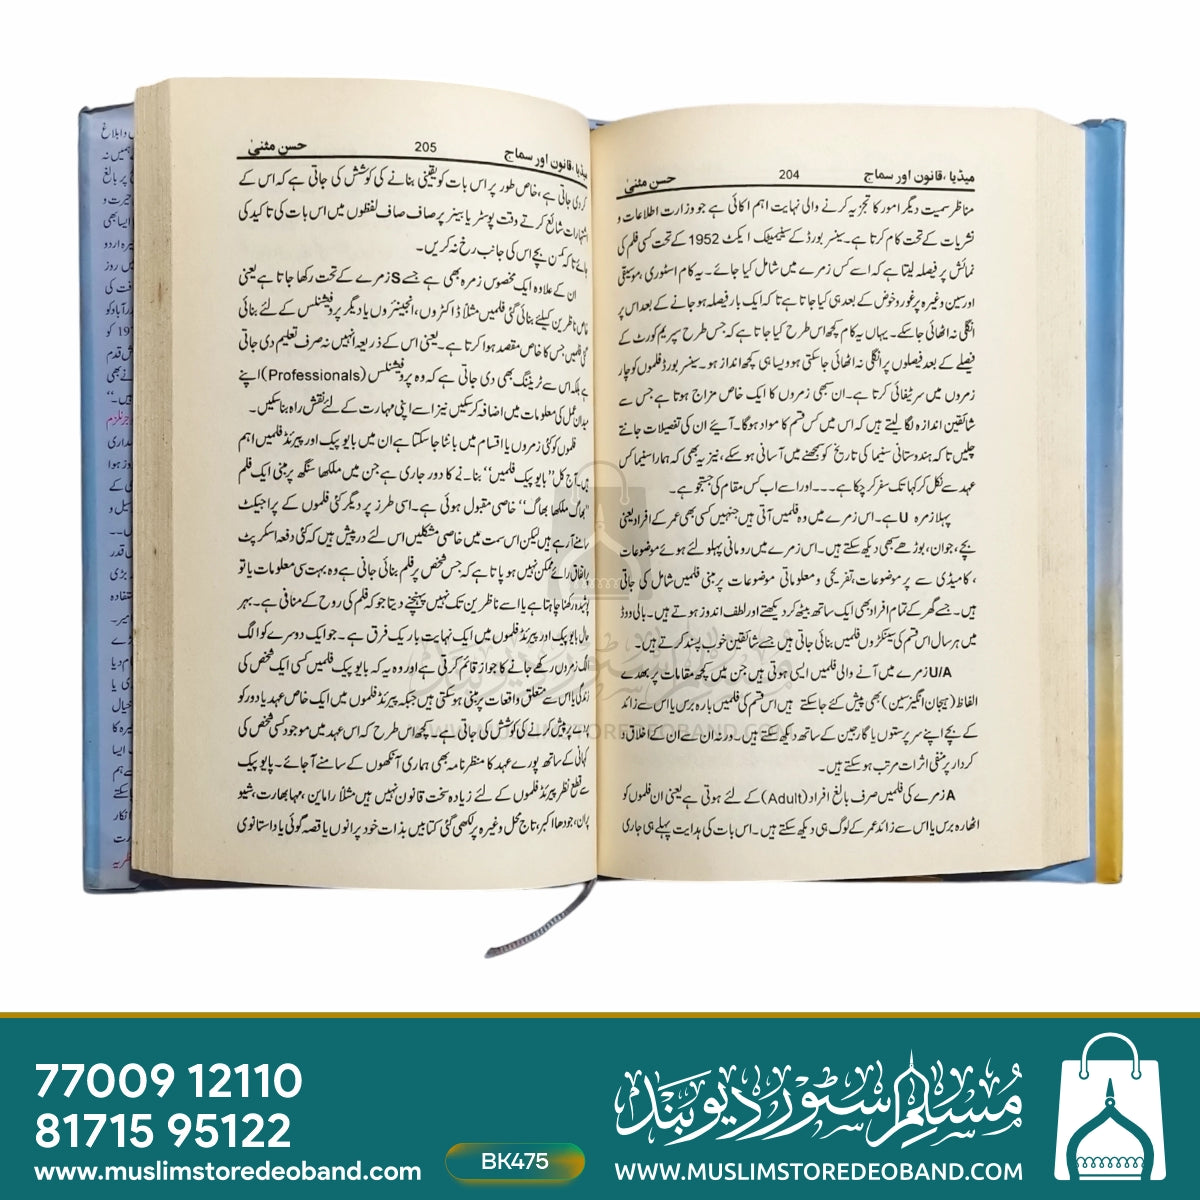 میڈیا، قانون اور سماج 204 حسن مثنیٰ
مناظر سمیت دیگر امور کا تجزیہ کرنے والی نہایت اہم اکائی ہے جو وزارت اطلاعات و
نشریات کے تحت کام کرتا ہے۔ سینسر بورڈ کے سنیمیٹک ایکٹ 1952 کے تحت کسی فلم کی
نمائش پر فیصلہ لیتا ہے کہ اسے کس زمرے میں شامل کیا جائے۔ یہ کام اسٹوری، موسیقی
اور سین وغیرہ پر غور و خوض کے بعد ہی کیا جاتا ہے تاکہ ایک بار فیصلہ ہو جانے کے بعد اس پر
انگلی نہ اٹھائی جا سکے۔ یہاں یہ کام کچھ اس طرح کیا جاتا ہے کہ جس طرح سپریم کورٹ کے
فیصلے کے بعد فیصلوں پر انگلی نہ اٹھائی جا سکتی ہو ویسا ہی کچھ انداز ہو۔ سینسر بورڈ فلموں کو چار
زمروں میں سرٹیفائی کرتا ہے۔ ان سبھی زمروں کا ایک خاص مزاج ہوتا ہے جس سے
شائقین اندازہ لگا لیتے ہیں کہ اس میں کس قسم کا مواد ہوگا۔ آیئے ان کی تفصیلات جانتے
چلیں تاکہ ہندوستانی سنیما کی تاریخ کو سمجھنے میں آسانی ہو سکے، نیز یہ بھی کہ ہمارا سنیما کس
عہد سے نکل کر کہا تک سفر کر چکا ہے۔۔۔ اور اسے اب کس مقام کی جستجو ہے۔
پہلا زمرہ U ہے۔ اس زمرے میں وہ فلمیں آتی ہیں جنہیں کسی بھی عمر کے افراد یعنی
بچے، جوان، بوڑھے سبھی دیکھ سکتے ہیں۔ اس زمرے میں رومانی پہلو لئے ہوئے موضوعات
، کامیڈی سے پر موضوعات، تفریحی و معلوماتی موضوعات پر مبنی فلمیں شامل کی جاتی
ہیں۔ جسے گھر کے تمام افراد بھی ایک ساتھ بیٹھ کر دیکھتے اور لطف اندوز ہوتے ہیں۔ بالی ووڈ
میں ہر سال اس قسم کی سینکڑوں فلمیں بنائی جاتی ہیں جسے شائقین خوب پسند کرتے ہیں۔
U/A زمرے میں آنے والی فلمیں ایسی ہوتی ہیں جن میں کچھ مقامات پر بھدے
الفاظ (ہیجان انگیز سین) بھی پیش کئے جا سکتے ہیں اس قسم کی فلمیں بارہ برس یا اس سے زائد
کے بچے اپنے سرپرستوں یا گارجین کے ساتھ دیکھ سکتے ہیں۔ ورنہ ان سے ان کے اخلاق و
کردار پر منفی اثرات مرتب ہو سکتے ہیں۔
A زمرے کی فلمیں صرف بالغ افراد (Adult) کے لئے ہوتی ہے یعنی ان فلموں کو
اٹھارہ برس یا اس سے زائد عمر کے لوگ ہی دیکھ سکتے ہیں۔ اس بات کی ہدایت پہلے ہی جاری
میڈیا، قانون اور سماج 205 حسن مثنیٰ
کر دی جاتی ہے، خاص طور پر اس بات کو یقینی بنانے کی کوشش کی جاتی ہے کہ اس کے
اشتہارات شائع کرتے وقت پوسٹر یا بینر پر صاف صاف لفظوں میں اس بات کی تاکید کی
جائے تاکہ کمسن بچے اس کی جانب رخ نہ کریں۔
ان کے علاوہ ایک مخصوص زمرہ بھی ہے جسے S زمرے کے تحت رکھا جاتا ہے یعنی
خاص ناظرین کیلئے بنائی گئی فلمیں مثلاً ڈاکٹروں، انجینئروں یا دیگر پروفیشنلس کے لئے بنائی
گئی فلمیں جس کا خاص مقصد ہوا کرتا ہے۔ یعنی اس کے ذریعہ انہیں نہ صرف تعلیم دی جاتی
ہے بلکہ اس سے ٹریننگ بھی دی جاتی ہے کہ وہ پروفیشنلس (Professionals) اپنے
میدان عمل کی معلومات میں اضافہ کر سکیں نیز اسے اپنی مہارت کے لئے نقش راہ بنا سکیں۔
فلموں کو کئی زمروں یا اقسام میں بانٹا جا سکتا ہے ان میں بایو پیک اور پیرئڈ فلمیں اہم
ہیں۔ آج کل ”بایو پیک فلمیں“ بنانے کا دور جاری ہے جن میں ملکھا سنگھ پر مبنی ایک فلم
”بھاگ ملکھا بھاگ“ خاصی مقبول ہوئی ہے۔ اسی طرز پر دیگر کئی فلموں کے پراجیکٹ
سامنے آ رہے ہیں لیکن اس سمت میں خاصی مشکلیں اس لئے درپیش ہیں کہ کئی دفعہ اسکرپٹ
پر اتفاق رائے ممکن نہیں ہو پاتا ہے کہ جس شخص پر فلم بنائی جاتی ہے وہ بہت سی معلومات یا تو
پوشیدہ رکھنا چاہتا ہے یا اسے ناظرین تک نہیں پہنچنے دیتا جو کہ فلم کی روح کے منافی ہے۔ بہر
حال بایو پیک اور پیرئڈ فلموں میں ایک نہایت باریک فرق ہے۔ جو ایک دوسرے کو الگ
الگ زمروں رکھے جانے کا جواز قائم کرتی ہے اور وہ یہ کہ بایو پیک فلمیں کسی ایک شخص کی
زندگی یا اس سے متعلق واقعات پر مبنی ہو سکتی ہیں جبکہ پیرئڈ فلموں میں ایک خاص عہد یا دور کو
پردے پر پیش کرنے کی کوشش کی جاتی ہے۔ کچھ اس طرح کہ اس عہد میں موجود کسی شخص کی
کہانی کے ساتھ پورے عہد کا منظر نامہ بھی ہماری آنکھوں کے سامنے آ جائے۔ بایو پیک
سے قطع نظر پیرئڈ فلموں کے لئے زیادہ سخت قانون نہیں ہیں مثلاً راماین، مہابھارت، شیو
پران، جودھا اکبر، تاج محل وغیرہ پر لکھی گئی کتابیں بذات خود پرانوں یا قصہ گوئی یا داستانوی
مسلم سٹور دیوبند
WWW.MUSLIMSTOREDEOBAND.COM
77009 12110
81715 95122
www.muslimstoredeoband.com
BK475
مسلم سٹور دیوبند
WWW.MUSLIMSTOREDEOBAND.COM